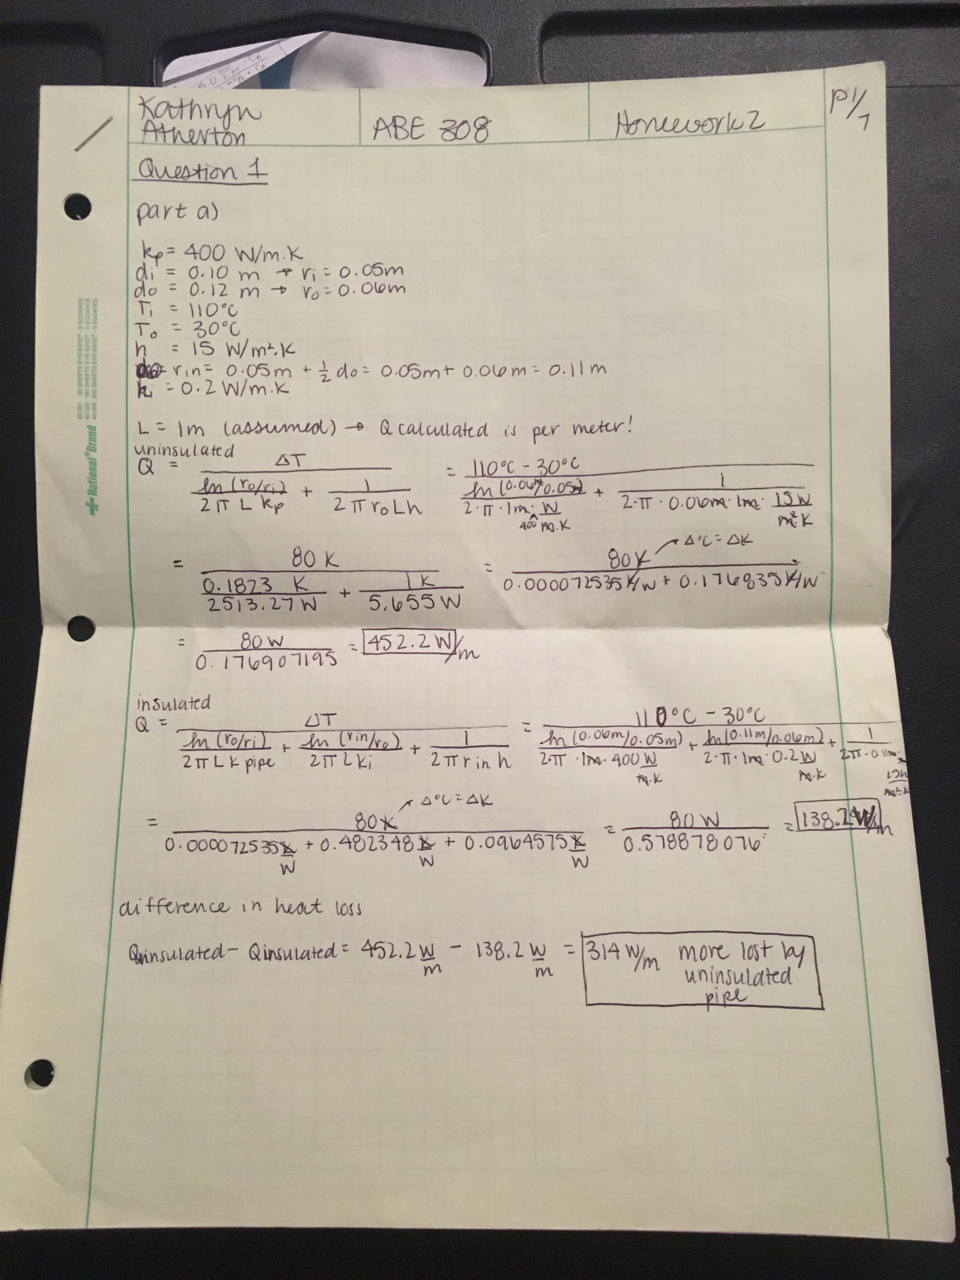 Kathryn Atherton
ABE 308
Homework 2
P 1/7
Question 1
part a)
kp = 400 W/m.K
di = 0.10 m → ri = 0.05m
do = 0.12 m → ro = 0.06m
Ti = 110°C
To = 30°C
h = 15 W/m².K
rin = 0.05m + 1/2 do = 0.05m + 0.06m = 0.11m
ki = 0.2 W/m.K
L = 1m (assumed) → Q calculated is per meter!
uninsulated
Q = ΔT / (ln(ro/ri) / 2πLkp + 1 / 2πroLh) = 110°C - 30°C / (ln(0.06/0.05) / 2·π·1m·400 W/m.K + 1 / 2·π·0.06m·1m·15W/m².K)
= 80K / (0.1823 K / 2513.27 W + 1K / 5.655 W) = 80K / (0.000072535 K/W + 0.176835 K/W) → Δ°C = ΔK
= 80 W / 0.176907195 = 452.2 W/m
insulated
Q = ΔT / (ln(ro/ri) / 2πLk pipe + ln(rin/ro) / 2πLki + 1 / 2πrin h) = 110°C - 30°C / (ln(0.06m/0.05m) / 2π·1m·400 W/m.K + ln(0.11m/0.06m) / 2·π·1m·0.2W/m.K + 1 / 2π·0.11m·15W/m².K)
= 80K / (0.000072535 K/W + 0.482348 K/W + 0.0964575 K/W) → Δ°C = ΔK = 80 W / 0.578878076 = 138.2 W/m
difference in heat loss
Quninsulated - Qinsulated = 452.2 W/m - 138.2 W/m = 314 W/m more lost by uninsulated pipe
National Brand